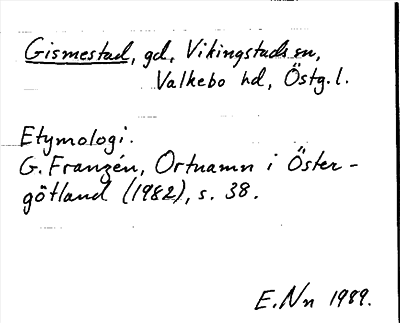 Gismestad, gd, Vikingstads sn,
Valkebo hd, Östg. l.
Etymologi.
G. Franzén, Ortnamn i Öster-
götland (1982), s. 38.
E. Nn 1989.